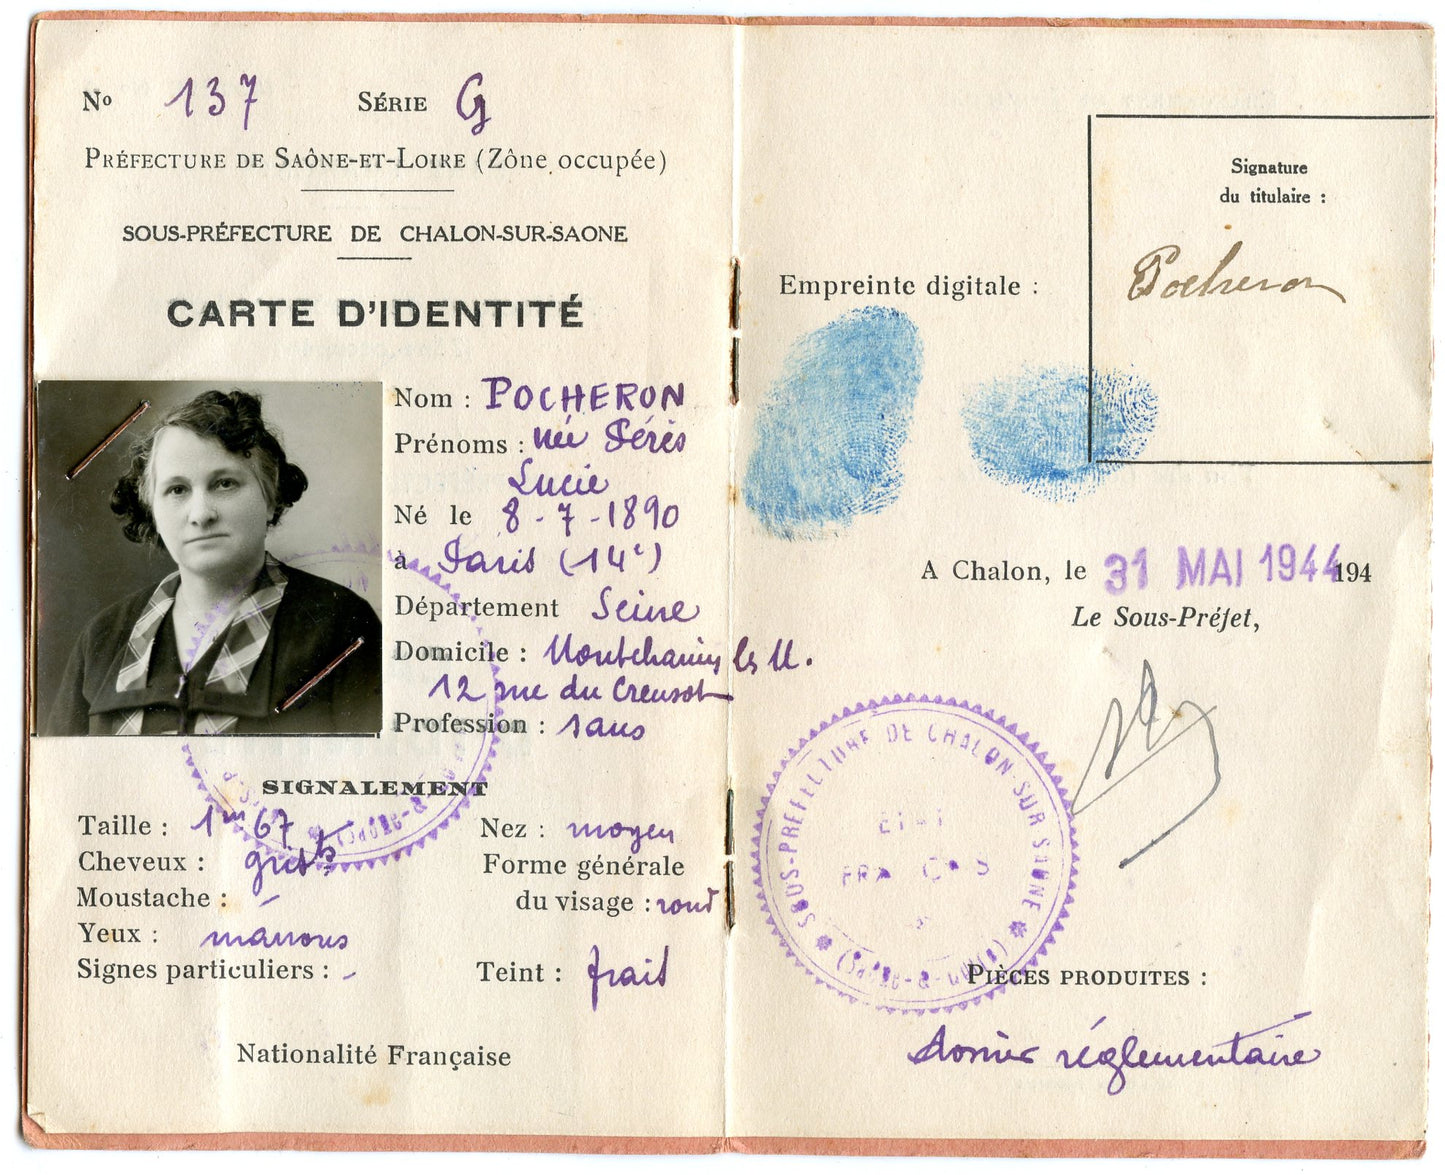 No 137 SÉRIE G
PRÉFECTURE DE SAÔNE-ET-LOIRE (Zône occupée)
SOUS-PRÉFECTURE DE CHALON-SUR-SAONE
CARTE D'IDENTITÉ
Nom : POCHERON
Prénoms : née Péris
Lucie
Né le 8-7-1890
à Paris (14e)
Département Seine
Domicile : Montchanin les M.
12 rue du Creusot
Profession : sans
SIGNALEMENT
Taille : 1m67
Cheveux :
Moustache : -
Yeux : marrons
Signes particuliers : -
Nez : moyen
Forme générale
du visage : rond
Teint : frais
Nationalité Française
Signature
du titulaire :
Pocheron
Empreinte digitale :
A Chalon, le 31 MAI 1944 194
Le Sous-Préfet,
SOUS-PRÉFECTURE DE CHALON-SUR-SAONE
ETAT
FRANÇAIS
(SAÔNE-&-LOIRE)
PIÈCES PRODUITES :
dossier réglementaire